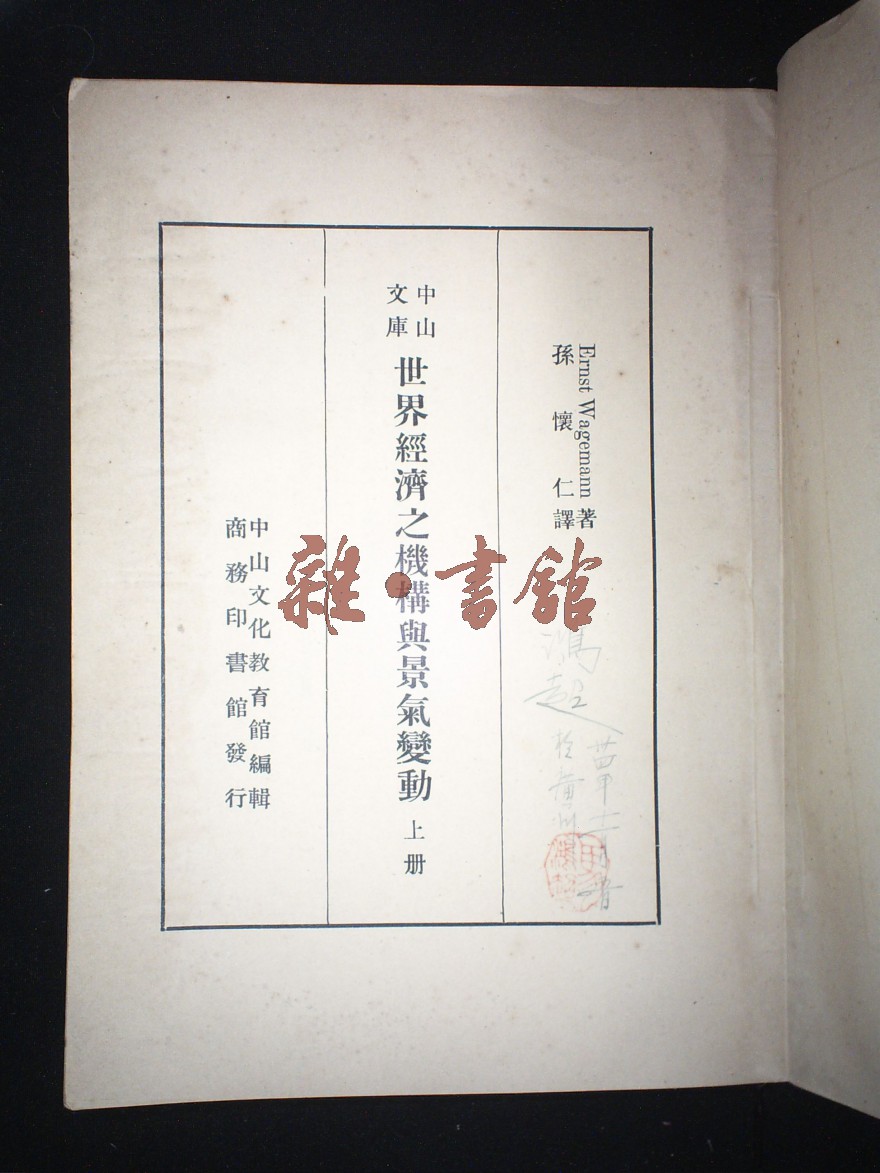 Ernst Wagemann著
孫懷仁譯
中山
文庫
世界經濟之機構與景氣變動 上册
中山文化教育館編輯
商務印書館發行
雜·書館
鴻起